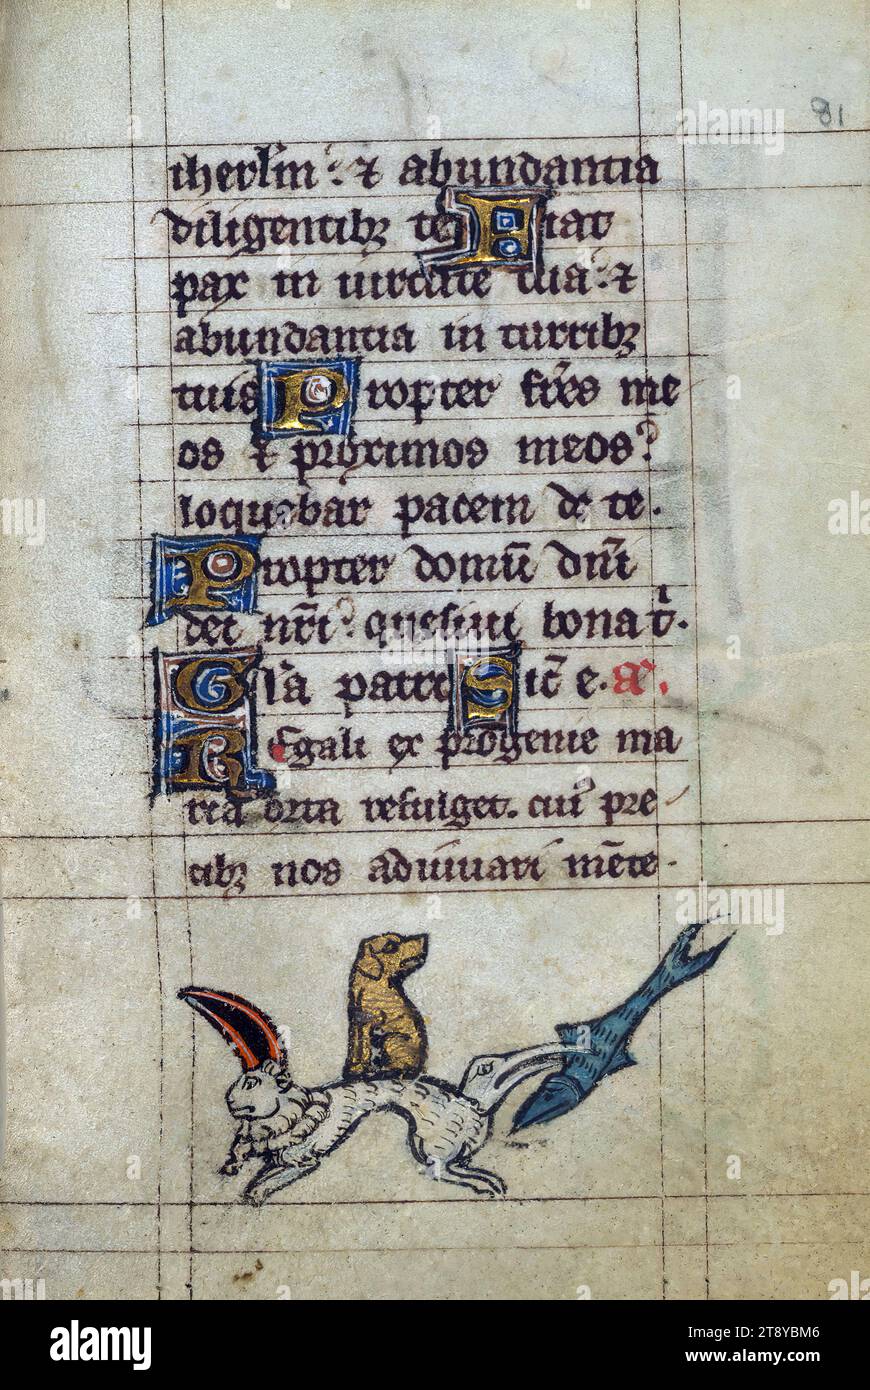 81
iherłm : ⁊ abundantia
diligentibꝫ te Fiat
pax in uirtute tua : ⁊
abundantia in turribꝫ
tuis Propter fr̄es me
os ⁊ proximos meos :
loquebar pacem de te .
Propter domū dn̄i
dei nr̄i : quesiui bona t̄ .
Gl̄a patri Sic̄ e . a̅ .
Regali ex progenie ma
ria orta refulget . cui᾽ pre
cibꝫ nos adiuuari m̄te .
alamy
Image ID: 2T8YBM6
www.alamy.com